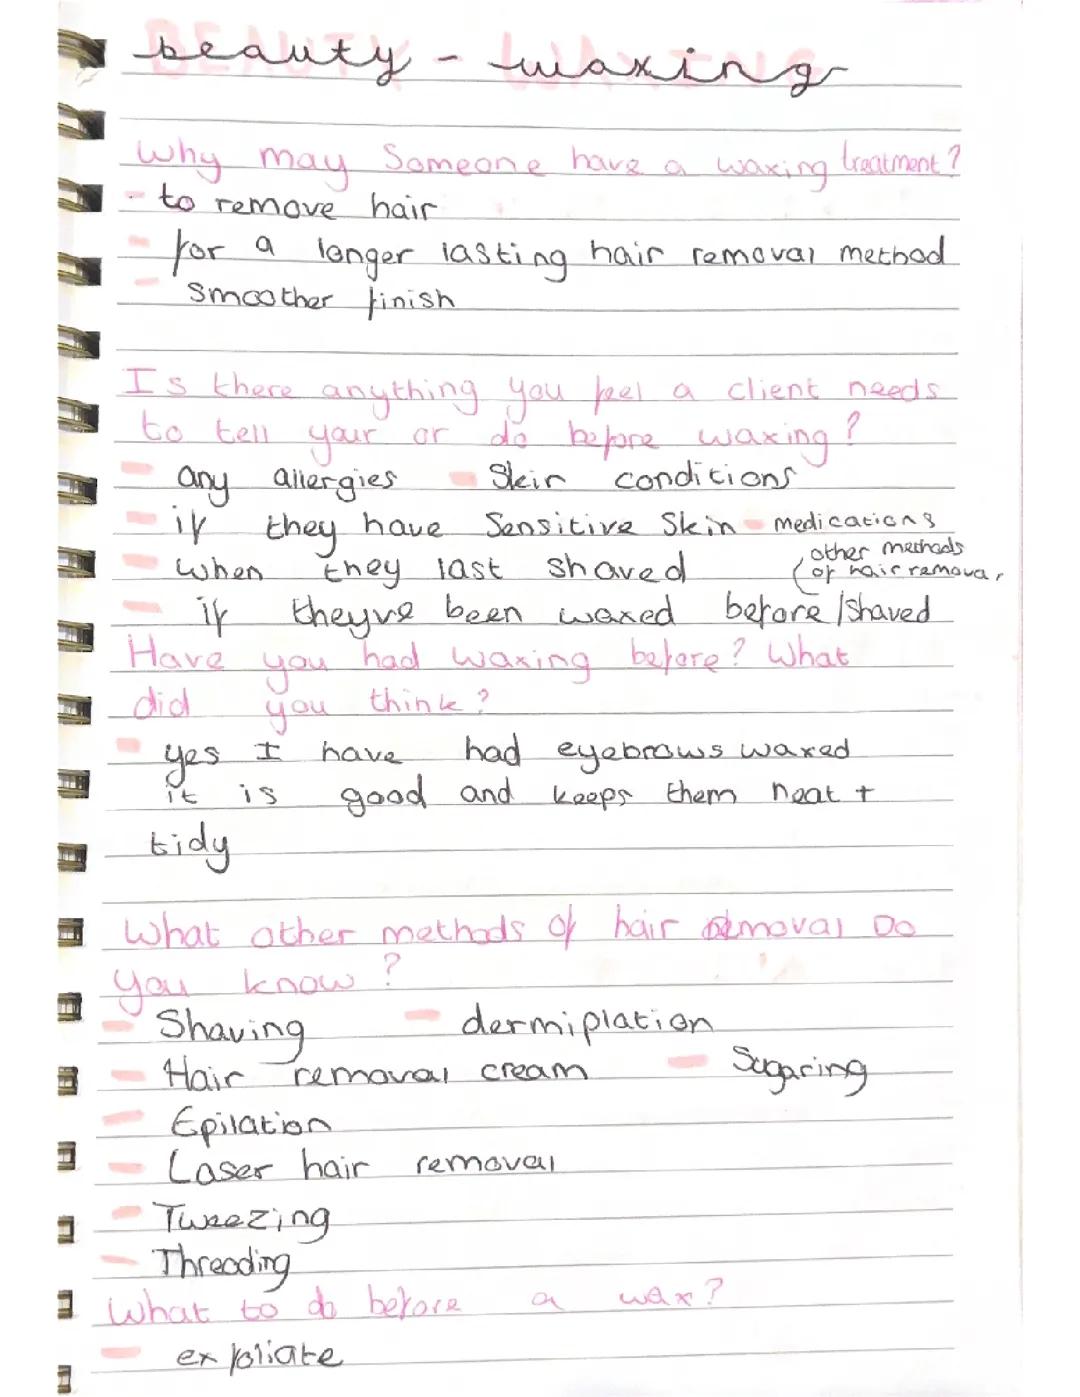 beauty - waxing
BEAUTY WAXING
Why may Someone have a waxing treatment?
- to remove hair
- for a longer lasting hair removal method
- smoother finish
Is there anything you feel a client needs
to tell your or do before waxing?
- any allergies - Skin conditions
- if they have Sensitive Skin - medications
- when they last shaved (other methods
of hair removal
- if theyve been waxed before/shaved
Have you had waxing before? What
did you think?
- yes I have had eyebrows waxed
it is good and keeps them neat +
tidy
What other methods of hair removal Do
you know?
- Shaving - dermiplation
- Hair removal cream - Sugaring
- Epilation
- Laser hair removal
- Tweezing
- Threading
What to do before a wax?
- exfoliate